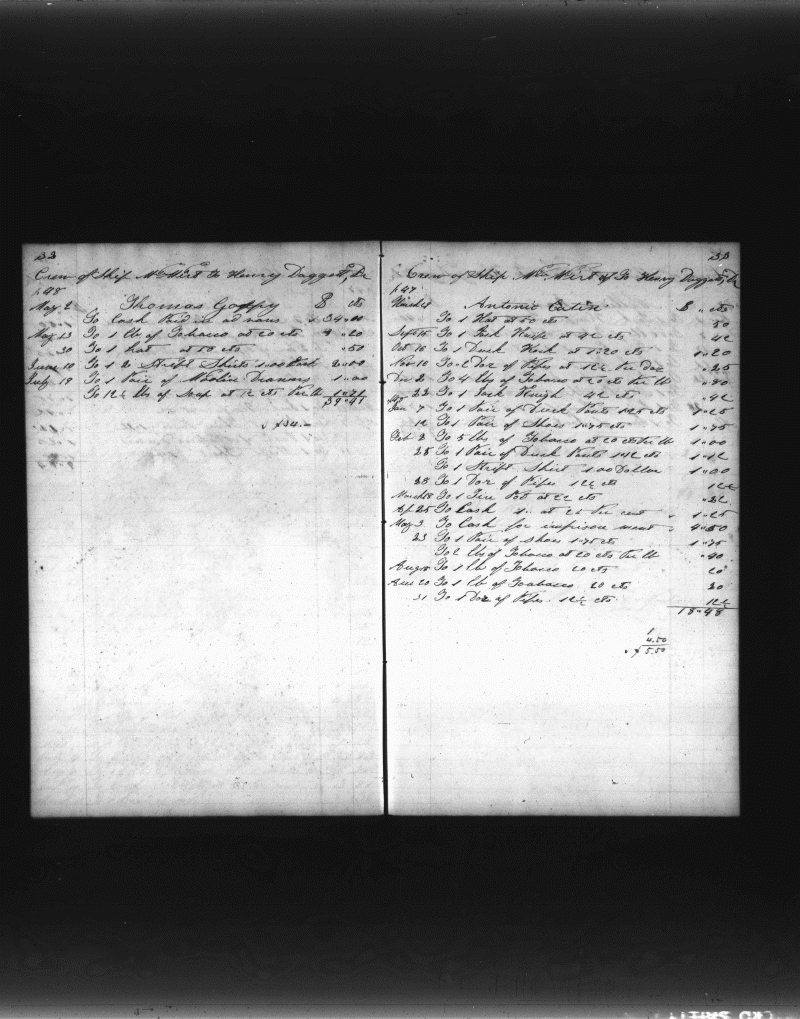 32
Crew of Ship Wm Wirt To Henry Daggett, Dr
148
May 2 Thomas Goppy $ cts
To Cash Paid in advans 34"00
May 13 To 1 lb of Tobacco at 20 cts "20
30 To 1 hat at 50 cts "50
June 10 To 1 2 Stript Shirts 1.00 Each 2"00
July 19 To 1 Pair of Woolin Drawers 1"00
To 12½ lbs of Soap at 12 cts Per lb
39"41
34.—
33
Crew of Ship Wm Wirt To Henry Daggett, Dr
147
Antonie $ cts
To 1 Hat at 50 cts 50
Sept 15 To 1 Knife at 42 cts 42
Oct 16 To 1 Duck at 1"20 cts 1"20
Nov 10 To 2 Doz of Pipes at 12½ Per Doz "25
Dec 2 To 4 lbs of Tobacco at 20 cts Per lb "80
22 To 1 42 cts "42
Jan 7 To 1 Pair of Duck Pants 125 cts 1"25
12 To 1 Pair of Shoes 1"75 cts 1"75
Feb 3 To 5 lbs of Tobacco at 20 cts Per lb 1"00
25 To 1 Pair of Duck Pants 112 cts 1"12
To 1 Stript Shirt 1.00 Dollar 1"00
28 To 1 Doz of Pipes 12½ cts 12½
March 8 To 1 Tin Pot at 22 cts "22
Ap 25 To Cash at 25 Per cent 1"25
May 3 To Cash for 4"50
23 To 1 Pair of Shoes 1"75 cts 1"75
To 2 lbs of Tobacco at 20 cts Per lb "40
To 1 lb of Tobacco 20 cts 20
20 To 1 lb of Toabacco 20 cts 20
31 To 1 Doz of Pipes 12½ cts 12½
18"48
1
4.50
5.50